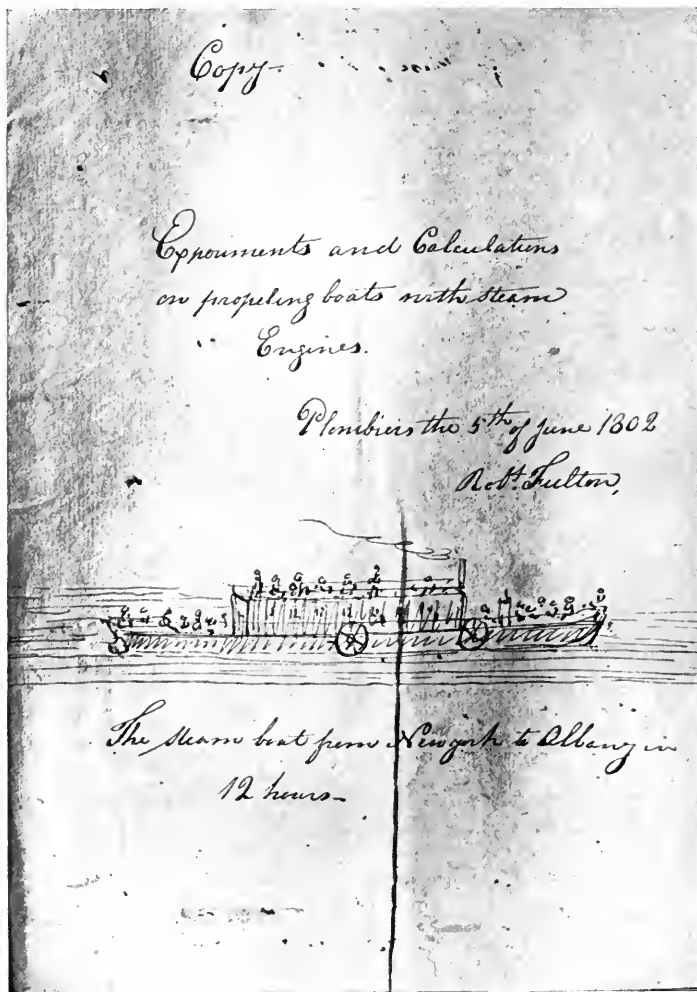 Copy-
Experiments and Calculations
on propeling boats with steam
Engines.
Plombiers the 5th of June 1802
Robt. Fulton,
The steam boat from New york to Albany in
12 hours-